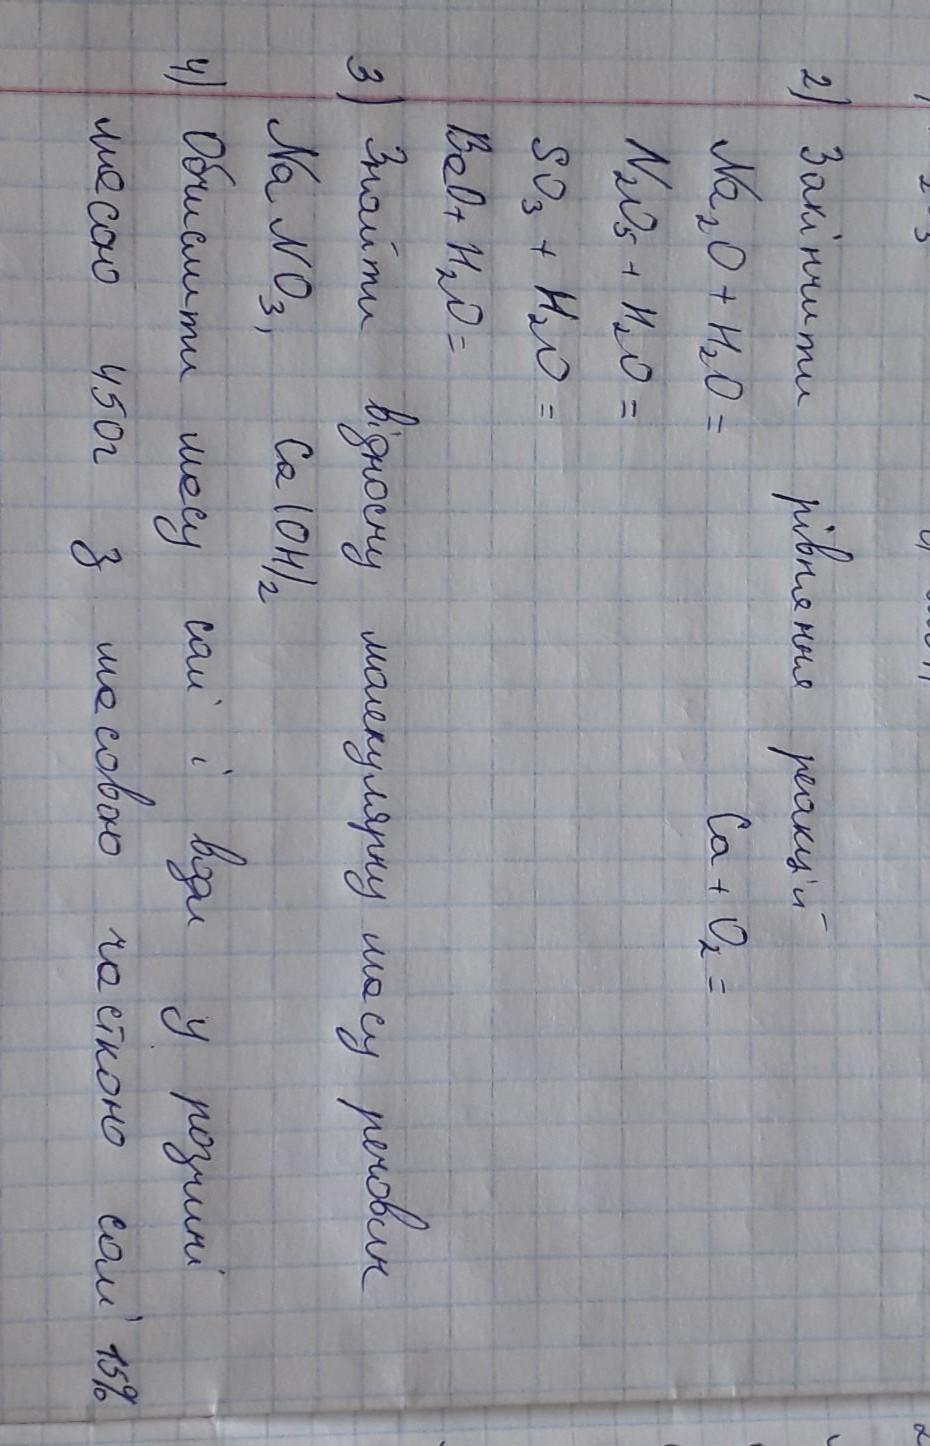 2) Закінчити рівняння реакцій
Na₂O + H₂O = Ca + O₂ =
N₂O₅ + H₂O =
SO₃ + H₂O =
BaO + H₂O =
3) Знайти відносну молекулярну масу речовин
NaNO₃, Ca(OH)₂
4) Обчислити масу солі і води у розчині
масою 450г з масовою часткою солі 15%